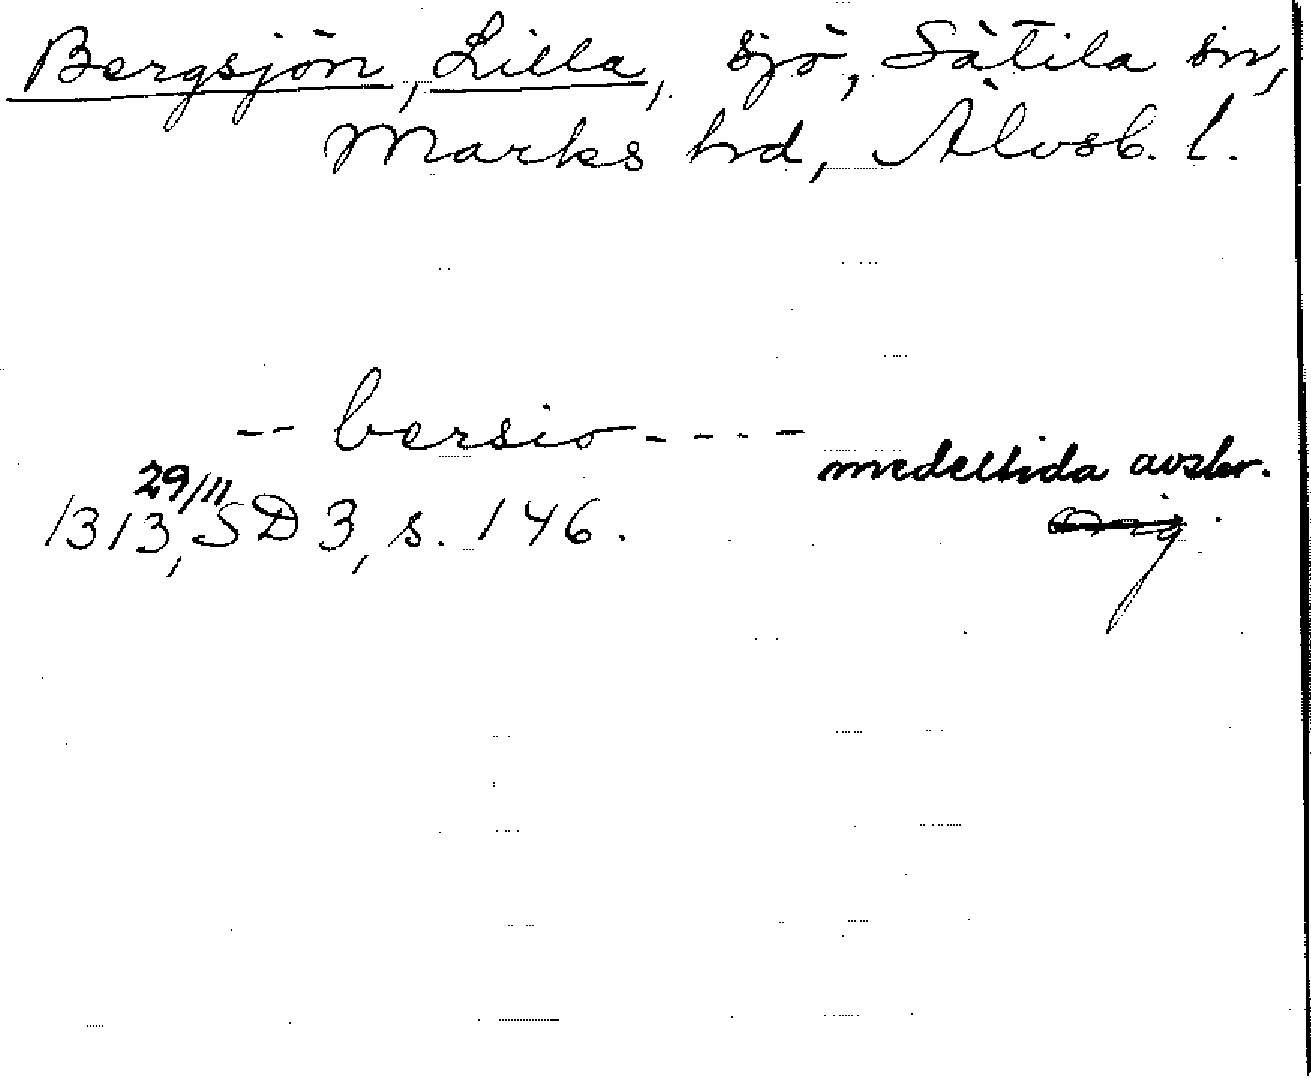 Bergsjön, Lilla, sjö, Sätila sn,
Marks hd, Älvsb. l.
-- bersio ----
medeltida avskr.
29/11
1313, SD 3, s. 146.
Orig.